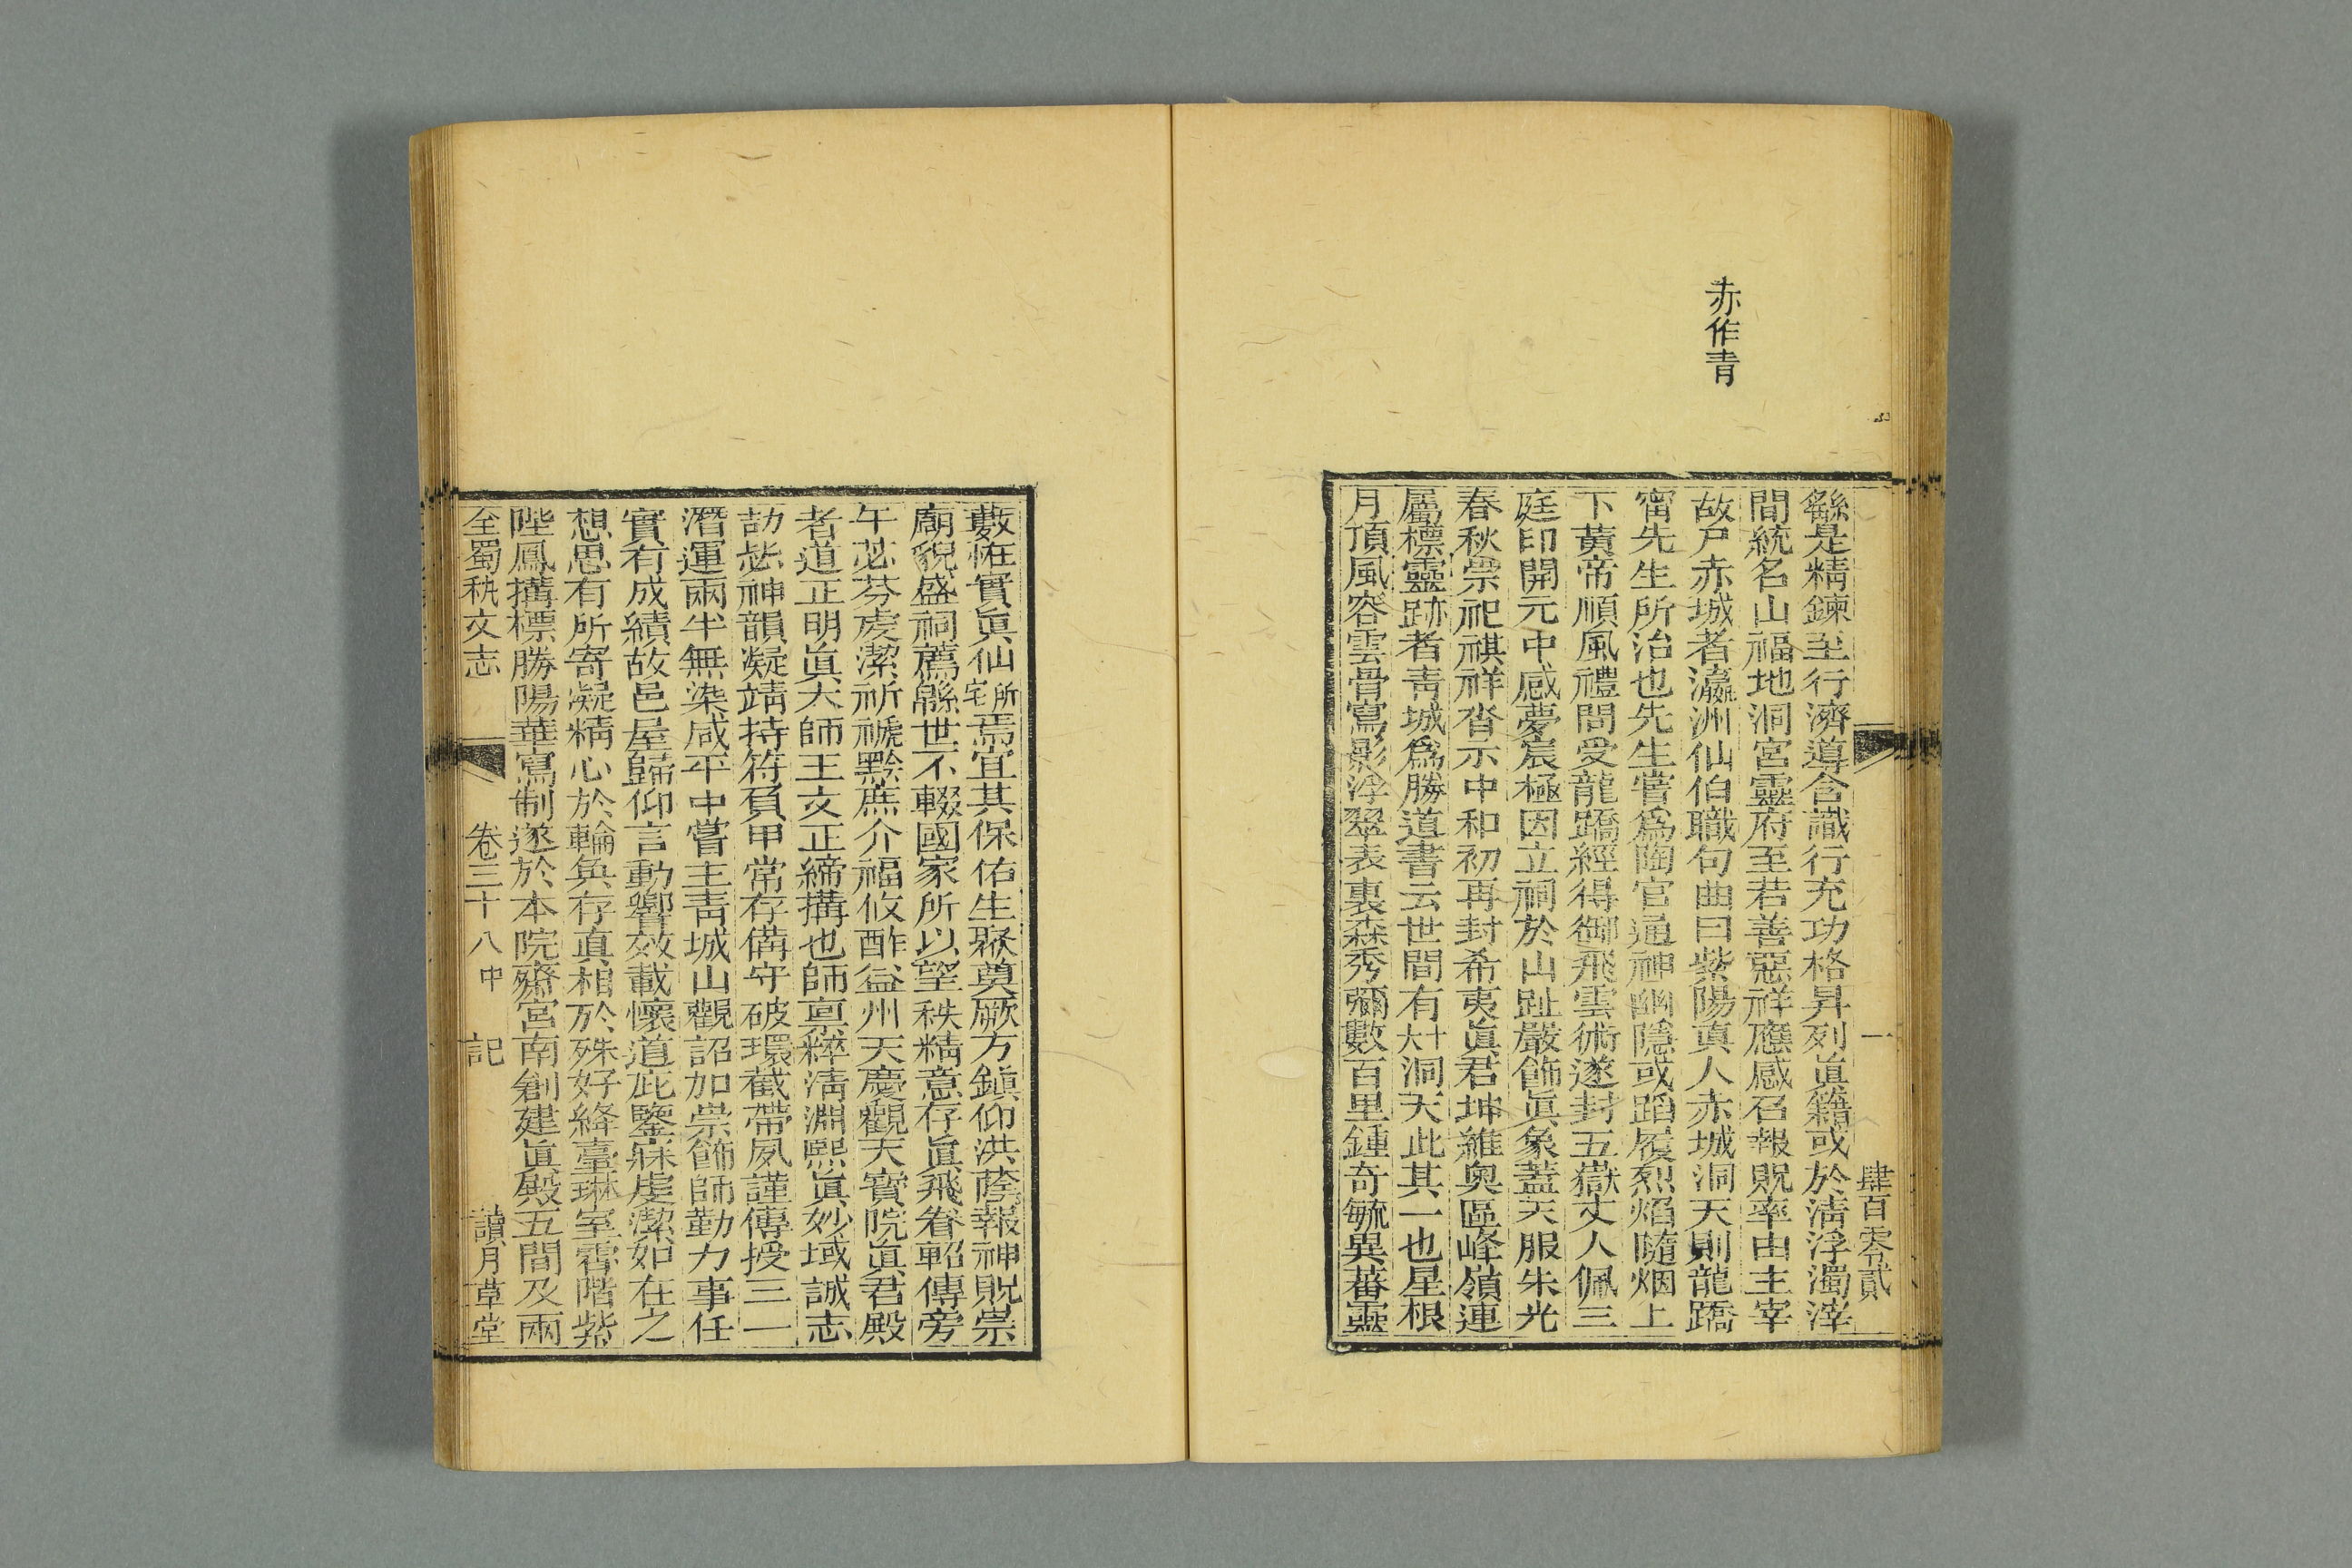 赤作青
一
肆百零貳
繇是精鍊至行濟導含識行充功格昇列眞籍或於淸浮濁滓
間統名山福地洞宮靈府至若善惡祥應感召報貺率由主宰
故尸赤城者瀛洲仙伯職句曲曰紫陽眞人赤城洞天則龍蹻
甯先生所治也先生嘗爲陶官通神幽隱或蹈履烈焰隨烟上
下黃帝順風禮問受龍蹻經得御飛雲術遂封五嶽丈人佩三
庭印開元中感夢宸極因立祠於山趾嚴飾眞象蓋天服朱光
春秋禜祀祺祥沓示中和初再封希夷眞君坤維奧區峰嶺連
屬標靈跡者靑城爲勝道書云世間有十大洞天此其一也星根
月頂風容雲骨寫影浮翠表裏森秀彌數百里鍾奇毓異蕃靈
藪怪實眞仙所宅焉宜其保佑生聚奠厥方鎭仰洪蔭報神貺崇
廟貌盛祠薦緜世不輟國家所以望秩精意存眞飛眷軺傳旁
午苾芬虔潔祈禠黔庶介福攸酢益州天慶觀天寶院眞君殿
者道正明眞大師王文正締搆也師稟粹淸淵熙眞妙域誠志
劼毖神韻凝靖持符負甲常存備守破環截帶夙謹傳授三一
潛運兩半無染咸平中嘗主靑城山觀詔加崇飾師勤力事任
實有成績故邑屋歸仰言動響效載懷道庇鑒寐虔潔如在之
想思有所寄凝精心於輪奐存眞相於殊好絳臺琳室霄階紫
陛鳳搆標勝陽華寫制遂於本院齋宮南創建眞殿五間及兩
全蜀秇文志
卷三十八中
記
讀月草堂